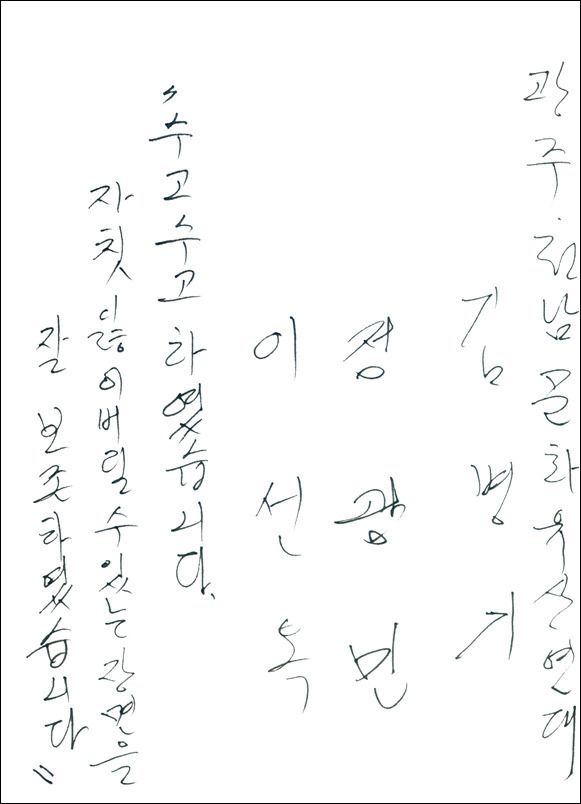 광주전남 문화유산연대
김병기
정광민
이선옥
"수고수고 하였습니다.
자칫 잃어버릴 수 있는 장면을
잘 보존하였습니다"